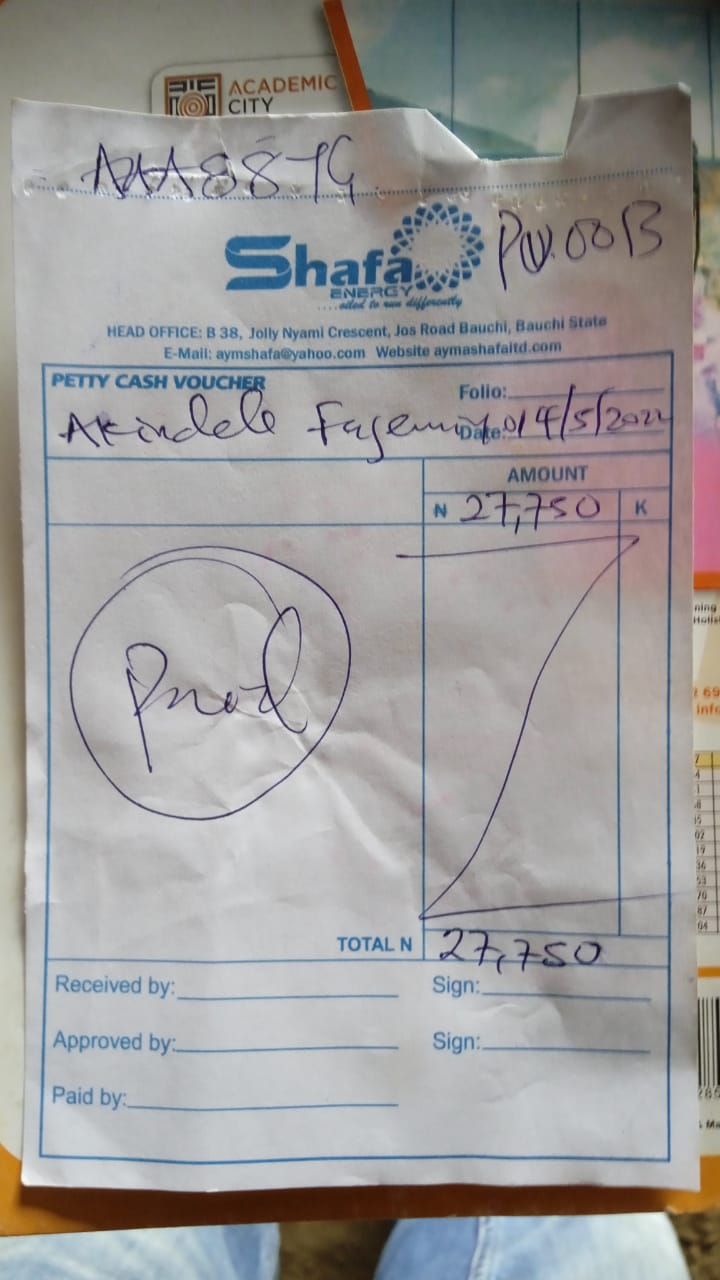 ACADEMIC
CITY
Shafa
ENERGY
....oiled to run differently
HEAD OFFICE: B 38, Jolly Nyami Crescent, Jos Road Bauchi, Bauchi State
E-Mail: aymshafa@yahoo.com Website aymashafaltd.com
PETTY CASH VOUCHER
Folio:
Akindele
Date: 4/5/2022
AMOUNT
N 27,750 K
TOTAL N 27,750
Received by: Sign:
Approved by: Sign:
Paid by: